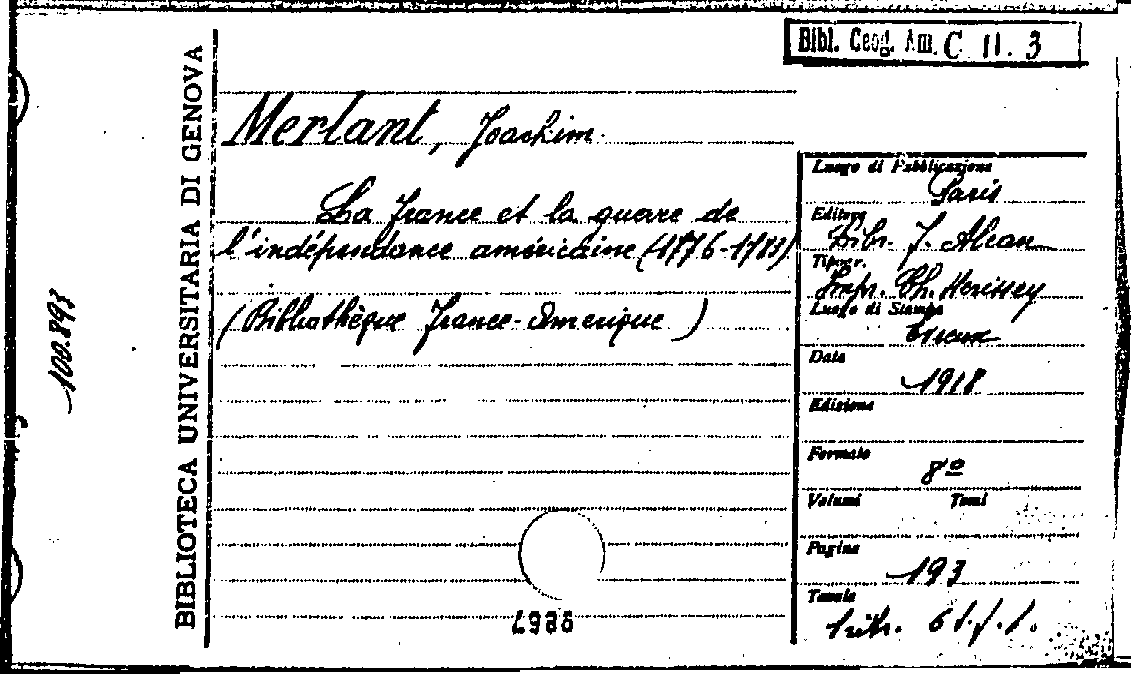 Bibl. Geog. Am. C 11. 3
BIBLIOTECA UNIVERSITARIA DI GENOVA
100.893
Merlant, Joachim.
La France et la guerre de
l'indépendance américaine (1776-1783)
(Bibliothèque France-Amerique)
Luogo di Pubblicazione
Paris
Editore
Libr. F. Alcan
Tipogr.
Impr. Ch. Herissey
Luogo di Stampa
Evreux
Data
1918
Edizione
Formato
8º
Volumi Tomi
Pagine
193
Tavole